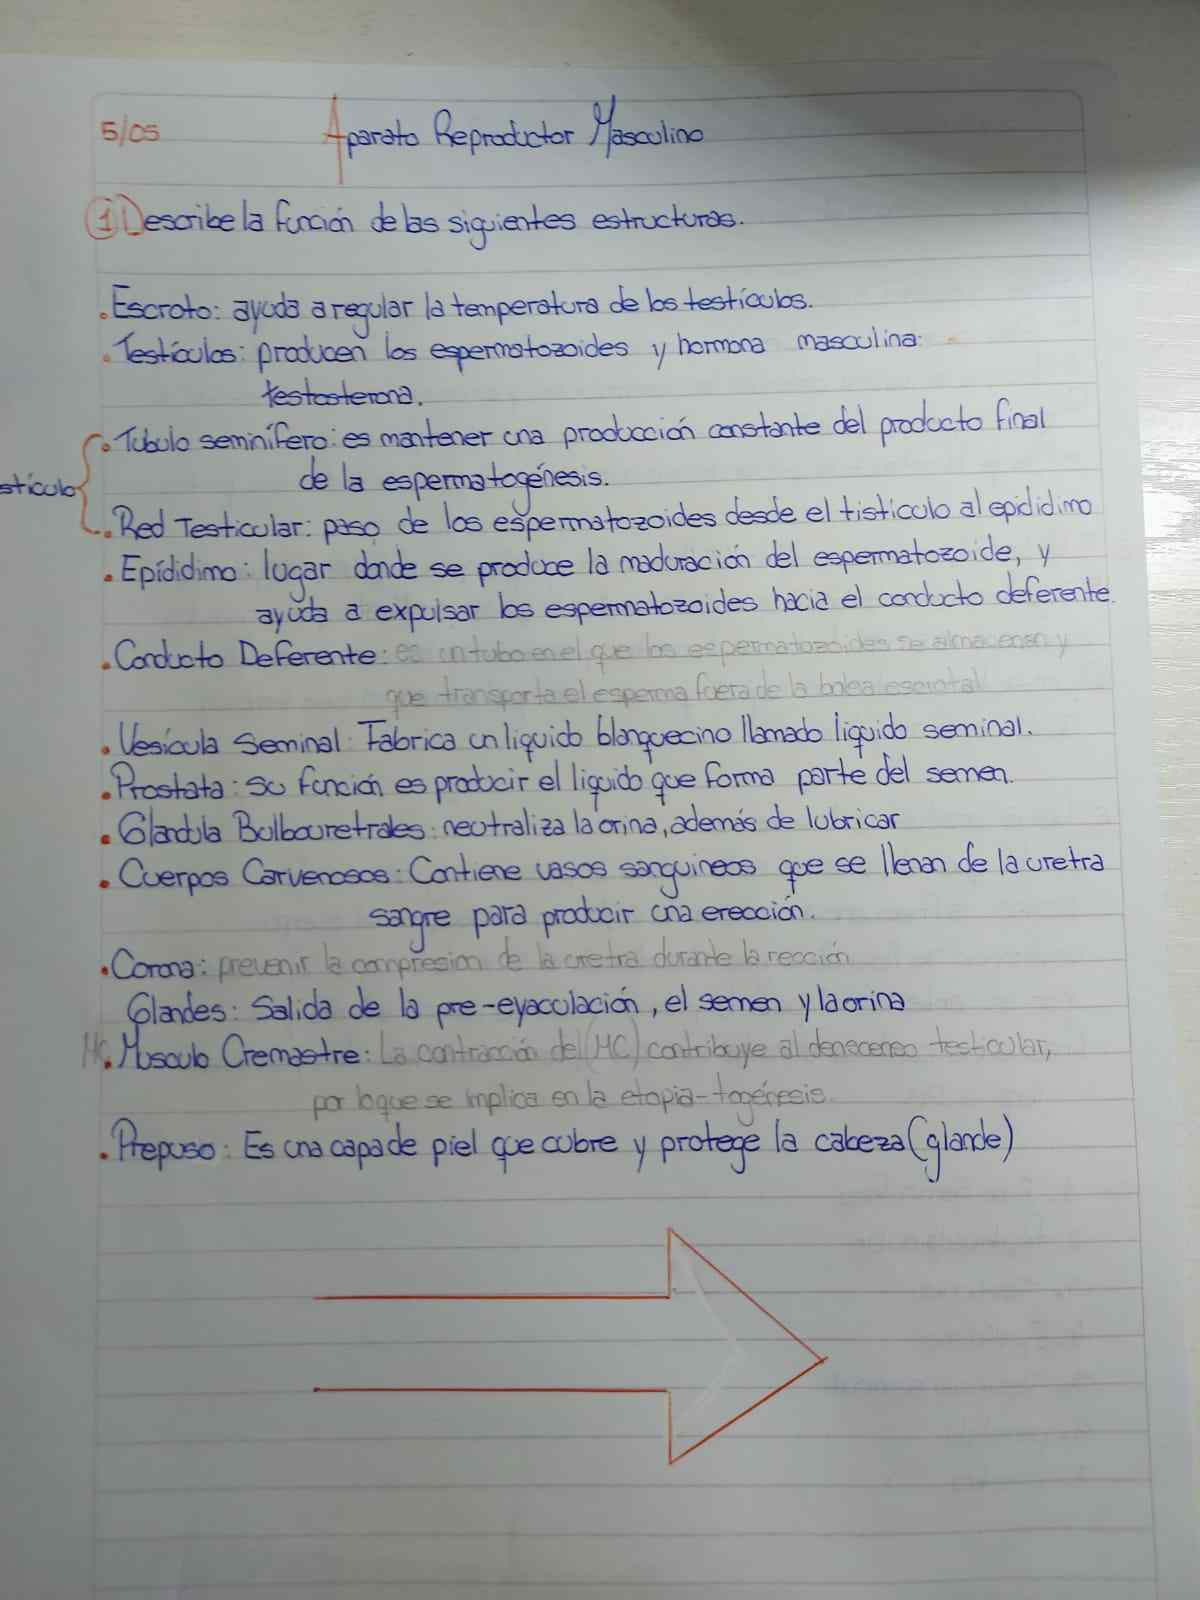 5/05
Aparato Reproductor Masculino
1 Describe la función de las siguientes estructuras.
. Escroto: ayuda a regular la temperatura de los testículos.
. Testículos: producen los espermatozoides y hormona masculina:
testosterona.
. Tubulo seminífero: es mantener una producción constante del producto final
de la espermatogénesis.
stículo
. Red Testicular: paso de los espermatozoides desde el tistículo al epididimo
. Epídidimo: lugar donde se produce la maduración del espermatozoide, y
ayuda a expulsar los espermatozoides hacia el conducto deferente.
. Conducto Deferente: es un tubo en el que los espermatozoides se almacenan y
que transporta el esperma fuera de la bolsa escrotal
. Vesícula Seminal: Fabrica un liquido blanquecino llamado liquido seminal.
. Prostata: su función es producir el liquido que forma parte del semen.
. Glandula Bulbouretrales: neutraliza la orina, además de lubricar
. Cuerpos Carvenosos: Contiene vasos sanguineos que se llenan de la uretra
sangre para producir una erección.
. Corona: prevenir la compresion de la uretra durante la rección
Glandes: Salida de la pre-eyaculación, el semen y la orina
MC. Musculo Cremastre: La contracción del (MC) contribuye al denscenso testicular,
por lo que se implica en la etopia-togénesis.
. Prepuso: Es una capa de piel que cubre y protege la cabeza (glande)